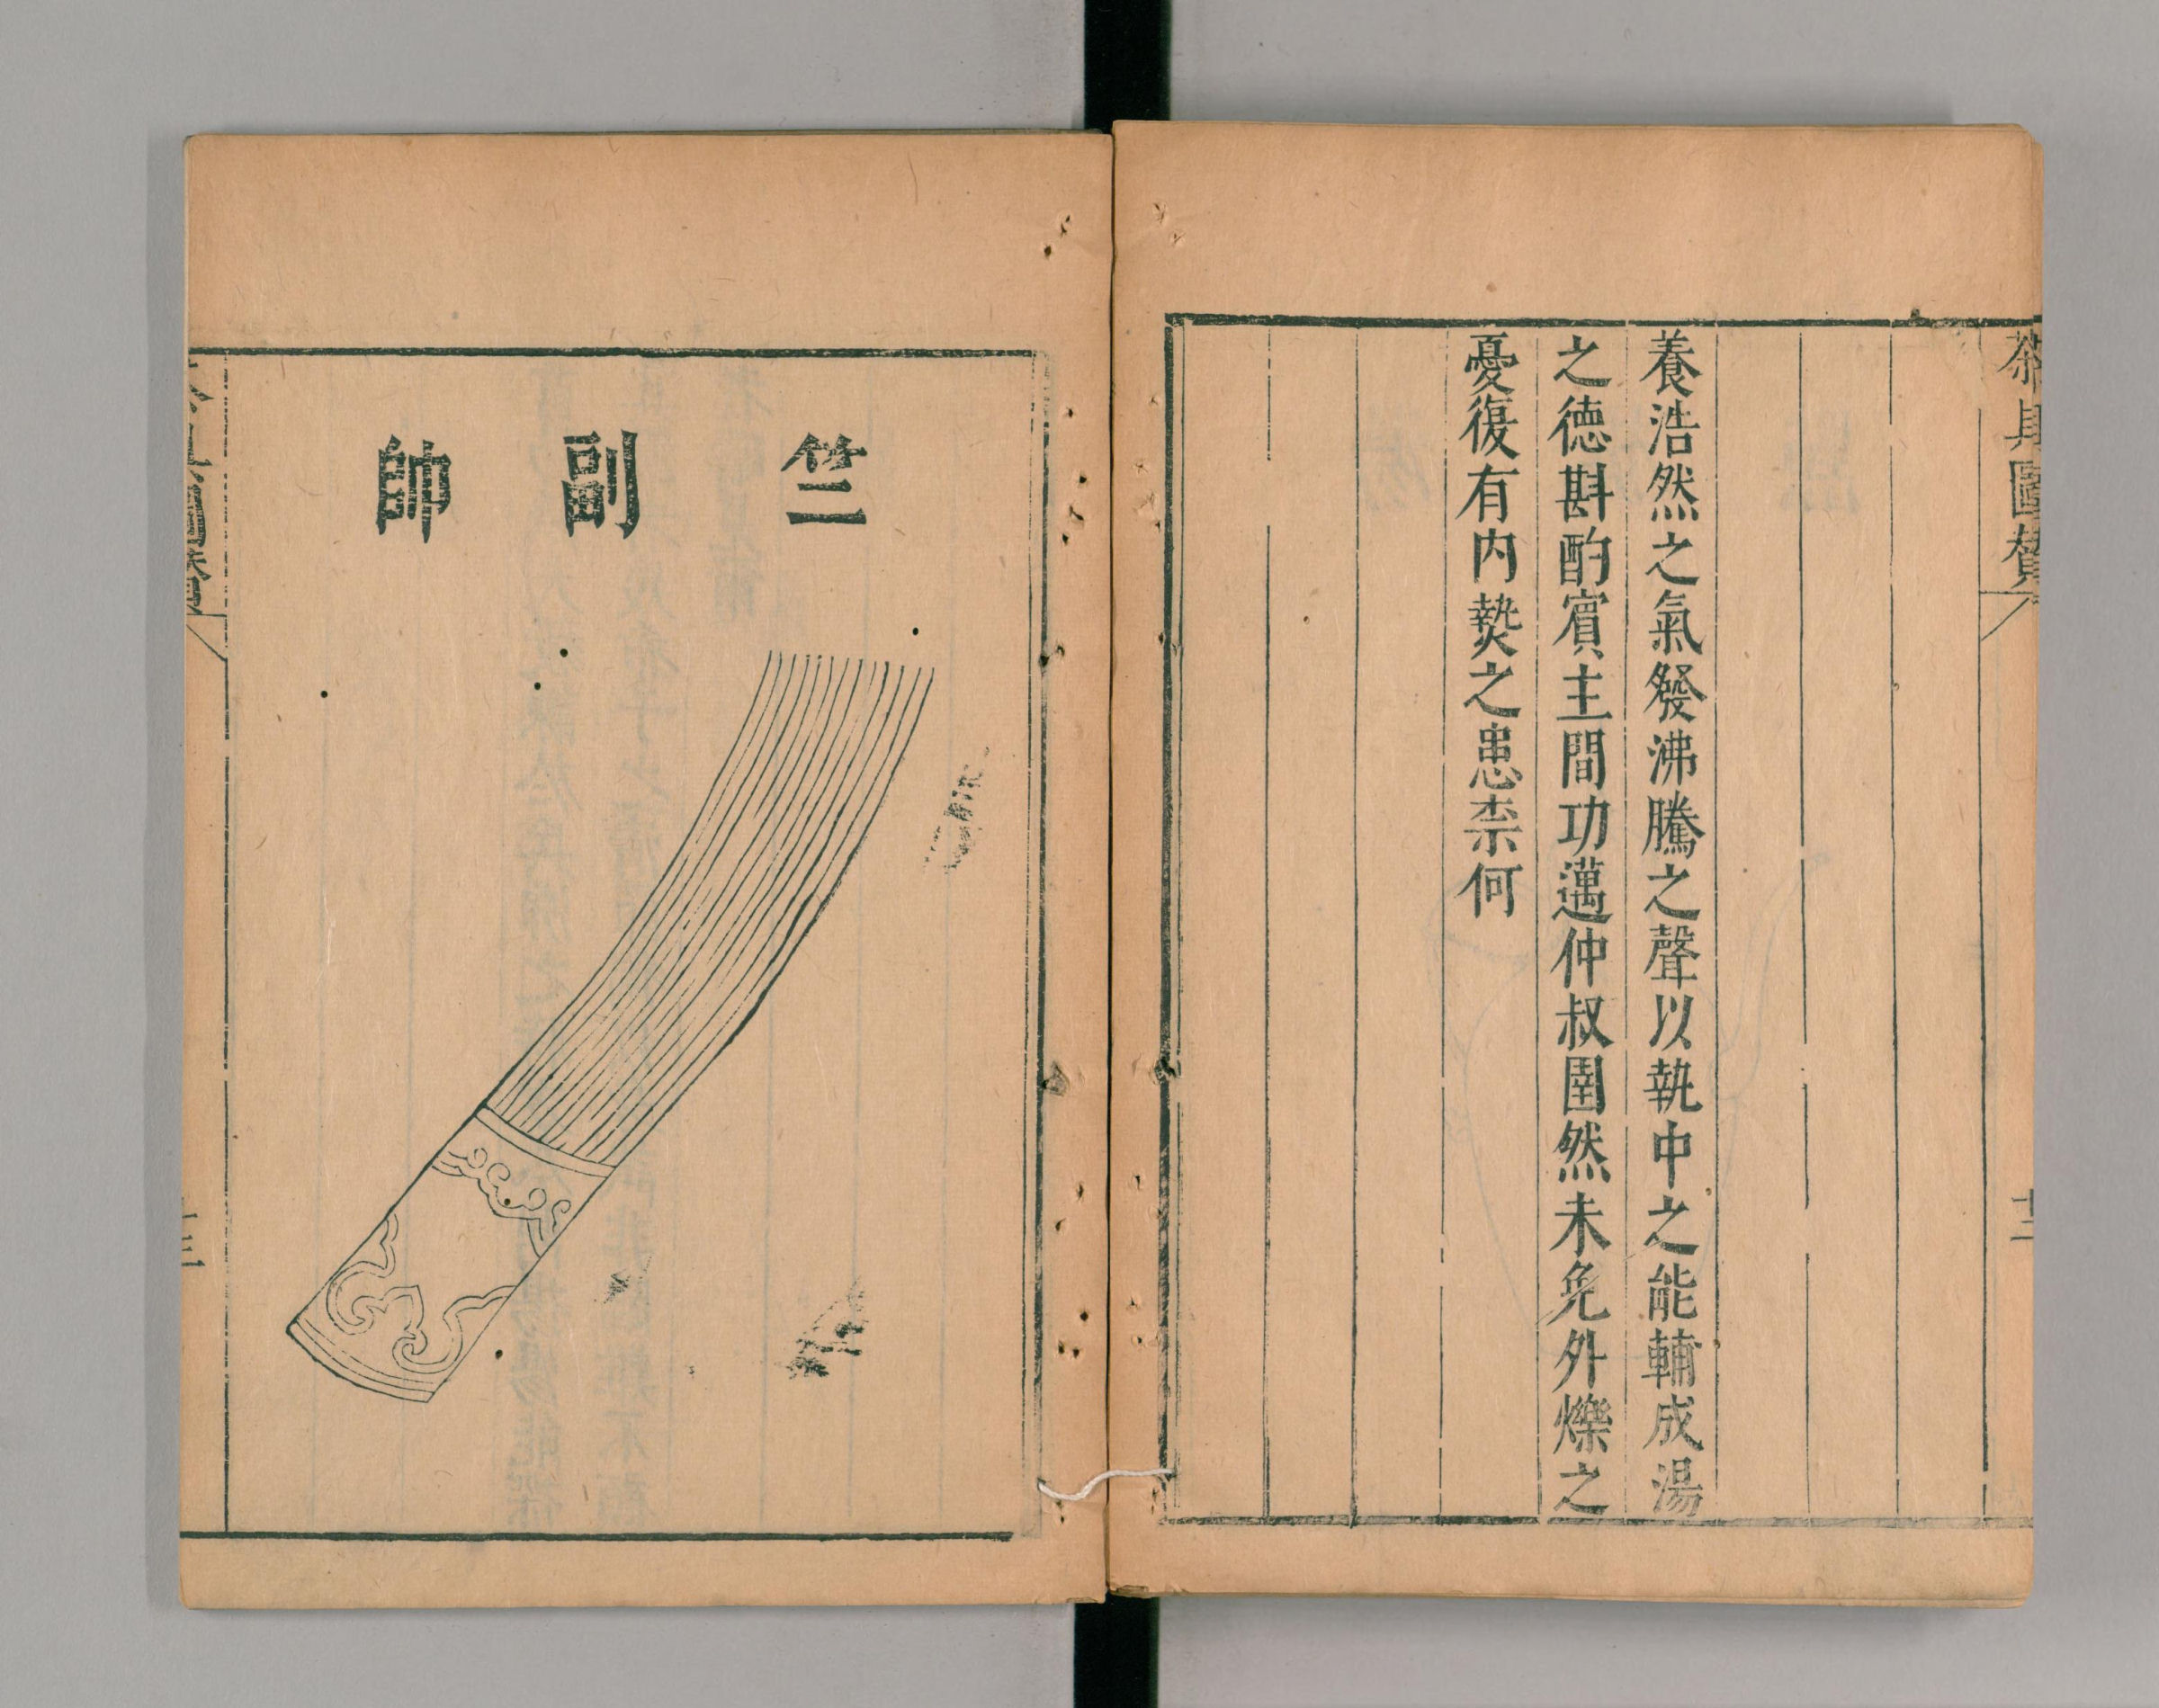 茶具圖贊
十二
養浩然之氣發沸騰之聲以執中之能輔成湯
之德斟酌賓主間功邁仲叔圉然未免外爍之
憂復有内熱之患柰何
竺副帥